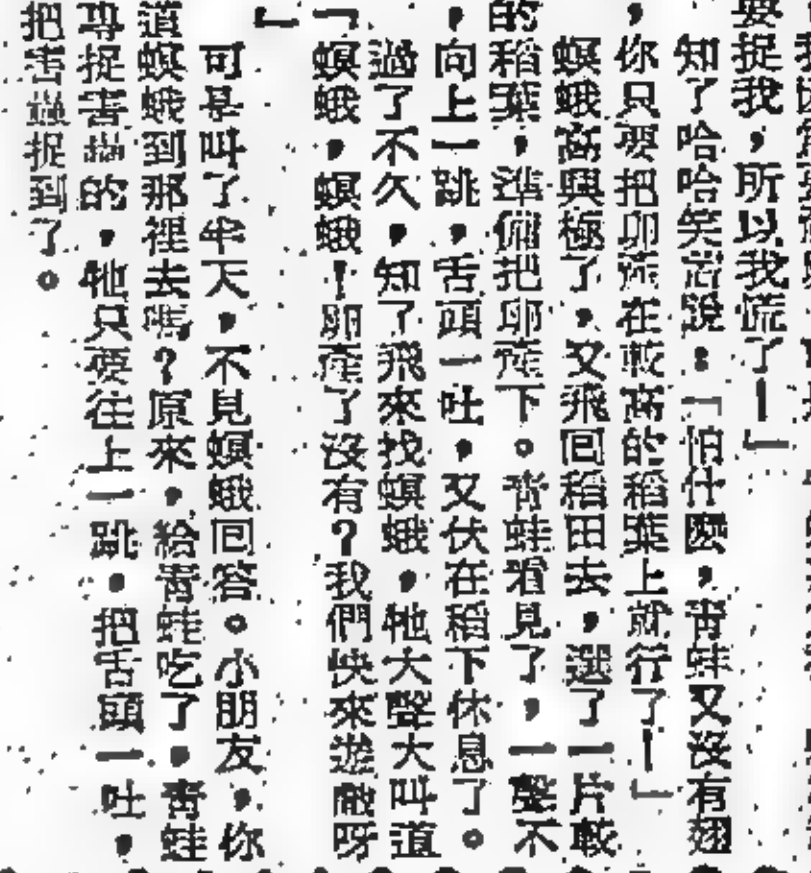 要捉我，所以我慌了！」
知了哈哈笑着說：「怕什麽，青蛙又沒有翅
，你只要把卵產在較高的稻葉上就行了！」
螟蛾高興極了，又飛回稻田去，選了一片較
的稻葉，準備把卵產下。青蛙看見了，一聲不
，向上一跳，舌頭一吐，又伏在稻下休息了。
過了不久，知了飛來找螟蛾，牠大聲大叫道
「螟蛾，螟蛾！卵產了沒有？我們快來遊戲呀
」
可是叫了半天，不見螟蛾回答。小朋友，你
道螟蛾到那裡去嗎？原來，給青蛙吃了，青蛙
專捉害蟲的，牠只要往上一跳，把舌頭一吐，
把害蟲捉到了。